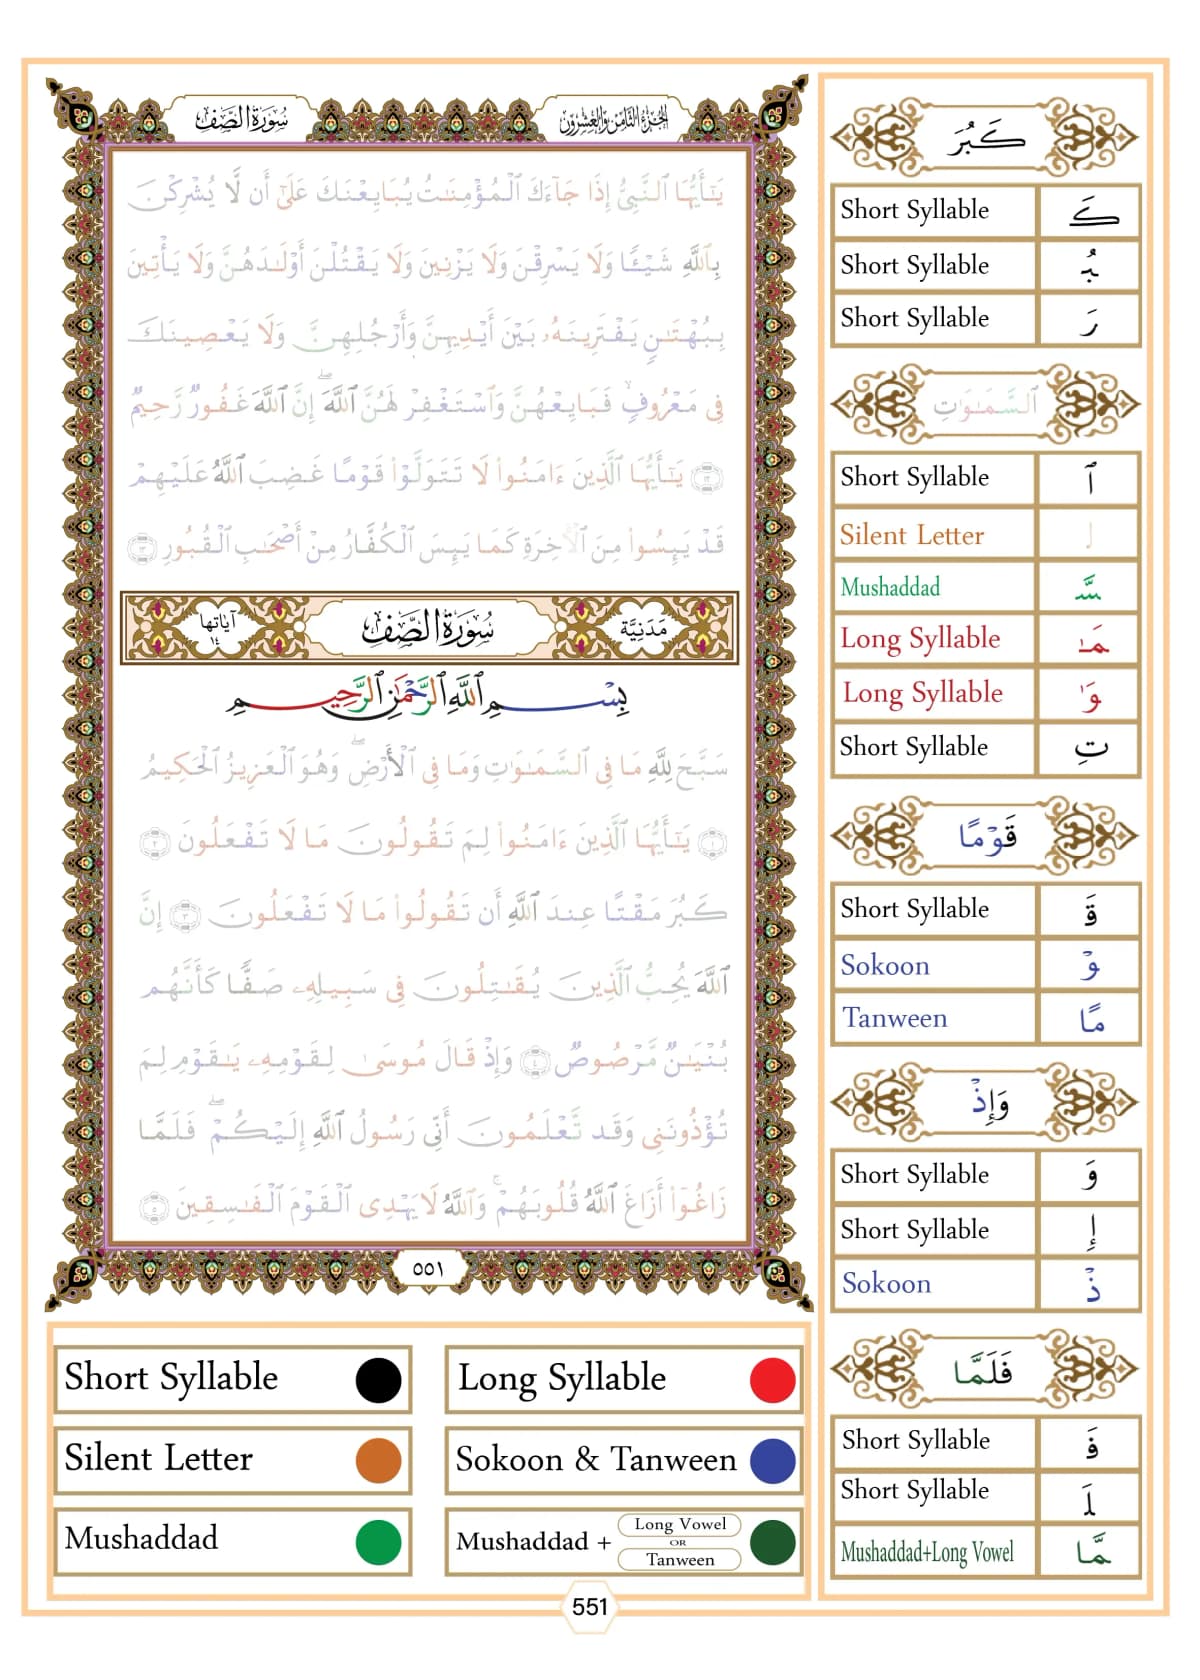 سُورَةُ الصَّف
الجُزْءُ الثَّامِنُ وَالعِشْرُون
يَـٰٓأَيُّهَا ٱلنَّبِىُّ إِذَا جَآءَكَ ٱلْمُؤْمِنَـٰتُ يُبَايِعْنَكَ عَلَىٰٓ أَن لَّا يُشْرِكْنَ
بِٱللَّهِ شَيْـًٔا وَلَا يَسْرِقْنَ وَلَا يَزْنِينَ وَلَا يَقْتُلْنَ أَوْلَـٰدَهُنَّ وَلَا يَأْتِينَ
بِبُهْتَـٰنٍ يَفْتَرِينَهُۥ بَيْنَ أَيْدِيهِنَّ وَأَرْجُلِهِنَّ وَلَا يَعْصِينَكَ
فِى مَعْرُوفٍ ۙ فَبَايِعْهُنَّ وَٱسْتَغْفِرْ لَهُنَّ ٱللَّهَ ۖ إِنَّ ٱللَّهَ غَفُورٌ رَّحِيمٌ
١٢ يَـٰٓأَيُّهَا ٱلَّذِينَ ءَامَنُوا۟ لَا تَتَوَلَّوْا۟ قَوْمًا غَضِبَ ٱللَّهُ عَلَيْهِمْ
قَدْ يَئِسُوا۟ مِنَ ٱلْـَٔاخِرَةِ كَمَا يَئِسَ ٱلْكُفَّارُ مِنْ أَصْحَـٰبِ ٱلْقُبُورِ ١٣
مَدَنِيَّة سُورَةُ الصَّف آيَاتُها ١٤
بِسْمِ ٱللَّهِ ٱلرَّحْمَـٰنِ ٱلرَّحِيمِ
سَبَّحَ لِلَّهِ مَا فِى ٱلسَّمَـٰوَٰتِ وَمَا فِى ٱلْأَرْضِ ۖ وَهُوَ ٱلْعَزِيزُ ٱلْحَكِيمُ
١ يَـٰٓأَيُّهَا ٱلَّذِينَ ءَامَنُوا۟ لِمَ تَقُولُونَ مَا لَا تَفْعَلُونَ ٢
كَبُرَ مَقْتًا عِندَ ٱللَّهِ أَن تَقُولُوا۟ مَا لَا تَفْعَلُونَ ٣ إِنَّ
ٱللَّهَ يُحِبُّ ٱلَّذِينَ يُقَـٰتِلُونَ فِى سَبِيلِهِۦ صَفًّا كَأَنَّهُم
بُنْيَـٰنٌ مَّرْصُوصٌ ٤ وَإِذْ قَالَ مُوسَىٰ لِقَوْمِهِۦ يَـٰقَوْمِ لِمَ
تُؤْذُونَنِى وَقَد تَّعْلَمُونَ أَنِّى رَسُولُ ٱللَّهِ إِلَيْكُمْ ۖ فَلَمَّا
زَاغُوٓا۟ أَزَاغَ ٱللَّهُ قُلُوبَهُمْ ۚ وَٱللَّهُ لَا يَهْدِى ٱلْقَوْمَ ٱلْفَـٰسِقِينَ ٥
٥٥١
كَبُرَ
Short Syllable كَ
Short Syllable بُ
Short Syllable رَ
ٱلسَّمَـٰوَٰتِ
Short Syllable ٱ
Silent Letter ل
Mushaddad سَّ
Long Syllable مَـٰ
Long Syllable وَٰ
Short Syllable تِ
قَوْمًا
Short Syllable قَ
Sokoon وْ
Tanween مًا
وَإِذْ
Short Syllable وَ
Short Syllable إِ
Sokoon ذْ
فَلَمَّا
Short Syllable فَ
Short Syllable لَ
Mushaddad+Long Vowel مَّا
Short Syllable
Long Syllable
Silent Letter
Sokoon & Tanween
Mushaddad
Mushaddad + Long Vowel OR Tanween
551